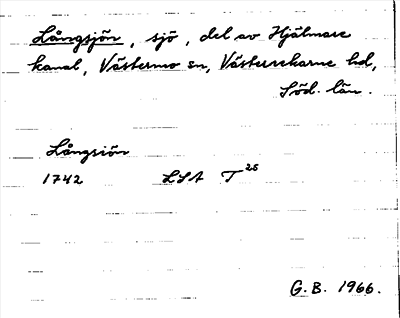 Långsjön, sjö, del av Hjälmare
kanal, Västermo sn, Västerrekarne hd,
Söd. län.
Långsiön
1742 LSA T 25
G.B. 1966.